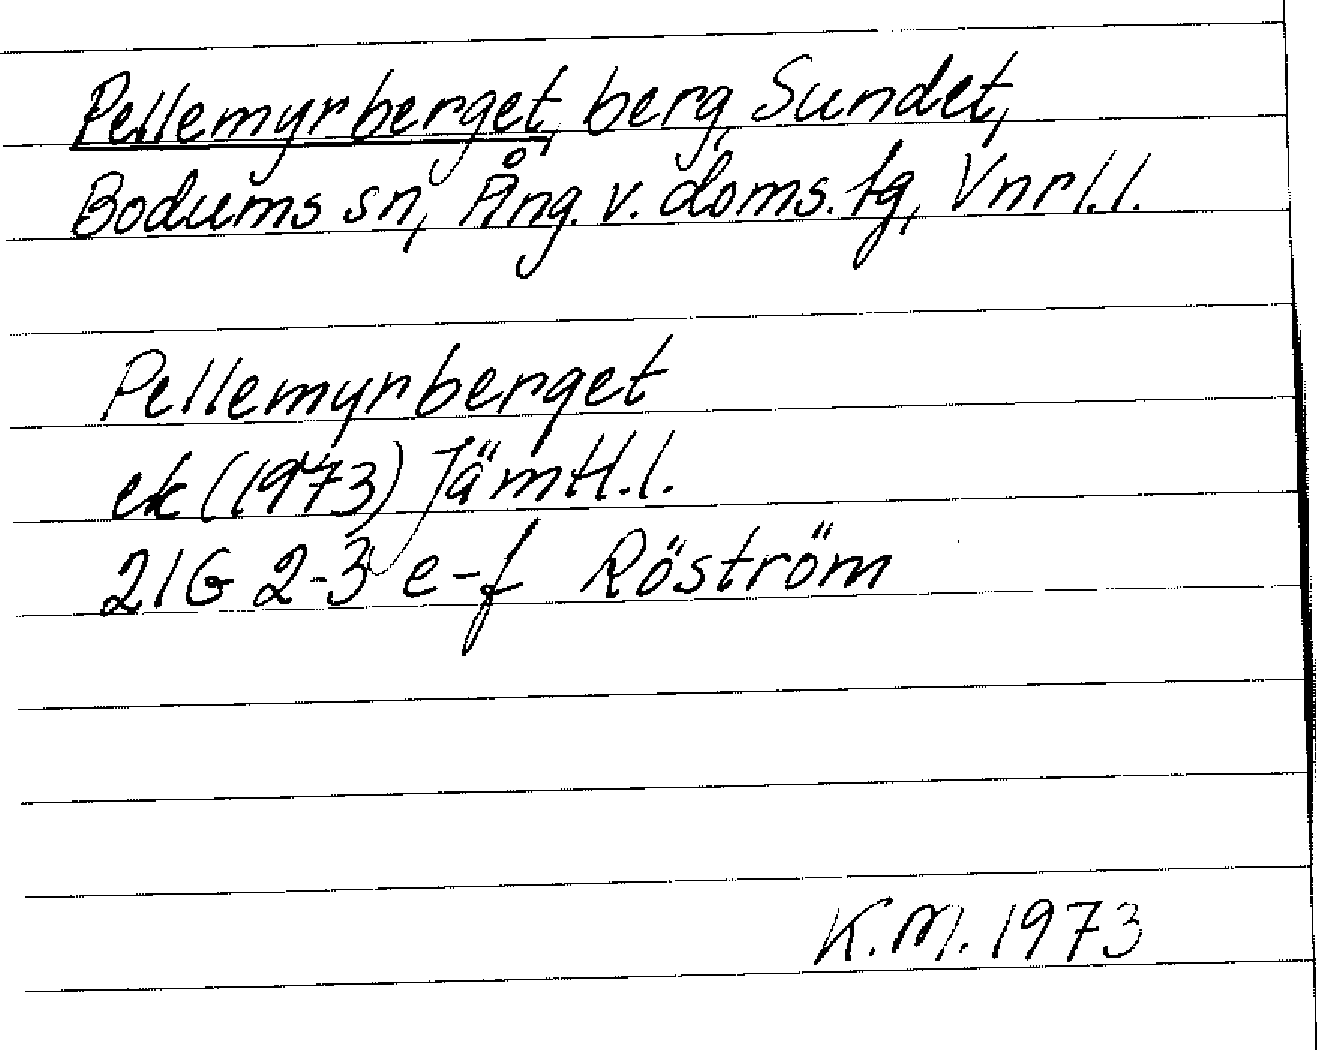 Pellemyrberget, berg, Sundet,
Bodums sn, Ång. v. doms. tg, Vnrl.l.
Pellemyrberget
ek (1973) Jämtl.l.
21G 2-3 e-f Röström
K.M. 1973